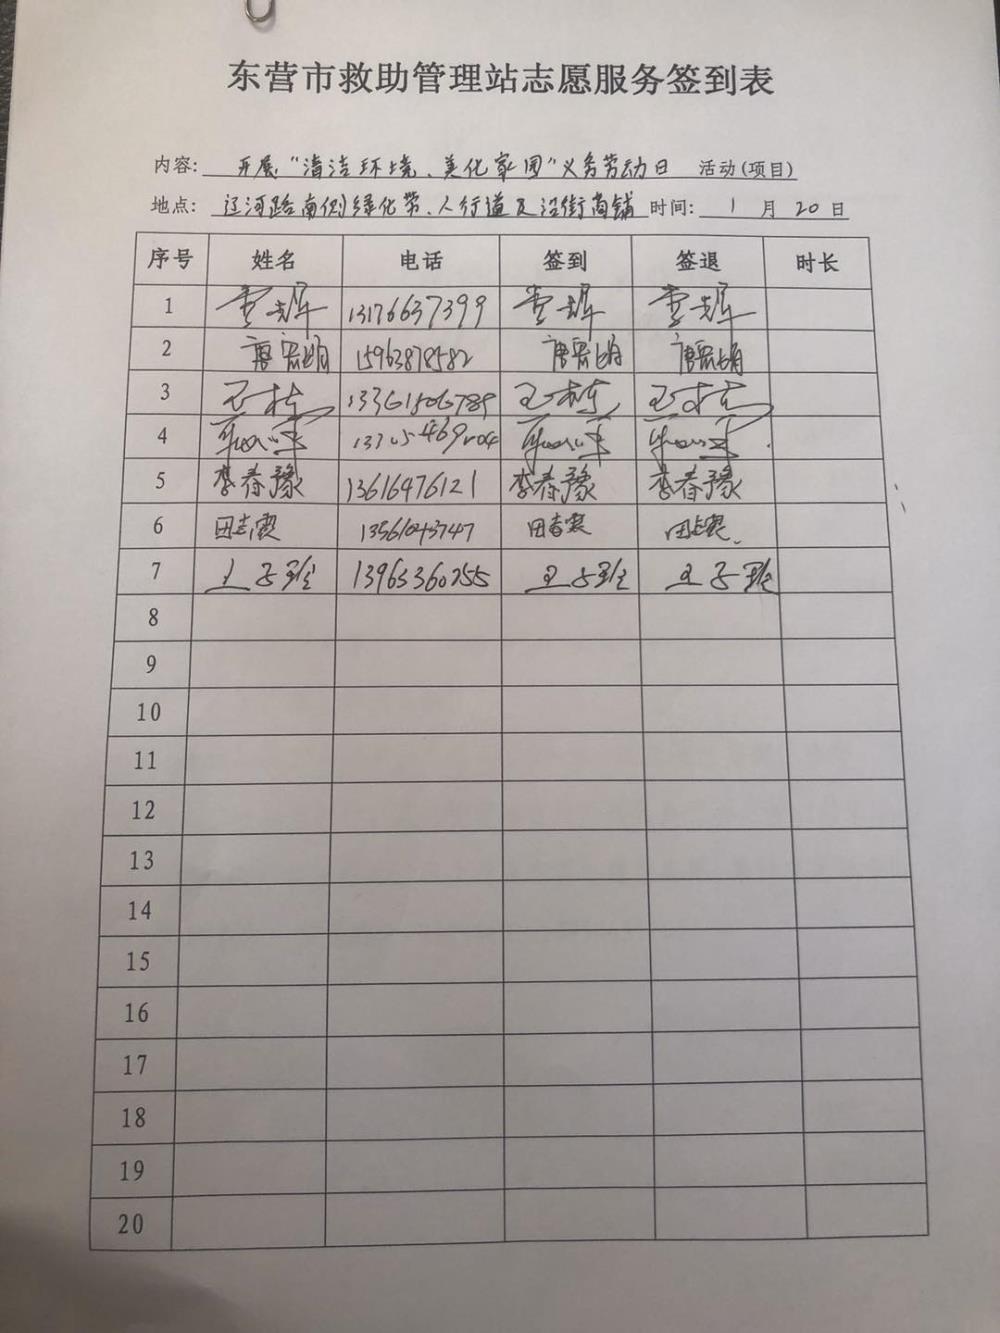 东营市救助管理站志愿服务签到表
内容: 开展“清洁环境、美化家园”义务劳动日 活动(项目)
地点: 辽河路南侧绿化带、人行道及沿街商铺 时间: 1 月 20 日
序号 姓名 电话 签到 签退 时长
1 13176637399
2 15963878582
3 王栋 13361506789 王栋 王栋
4
5 李春豫 13616476121 李春豫 李春豫
6 13561043747
7 13963360255
8
9
10
11
12
13
14
15
16
17
18
19
20